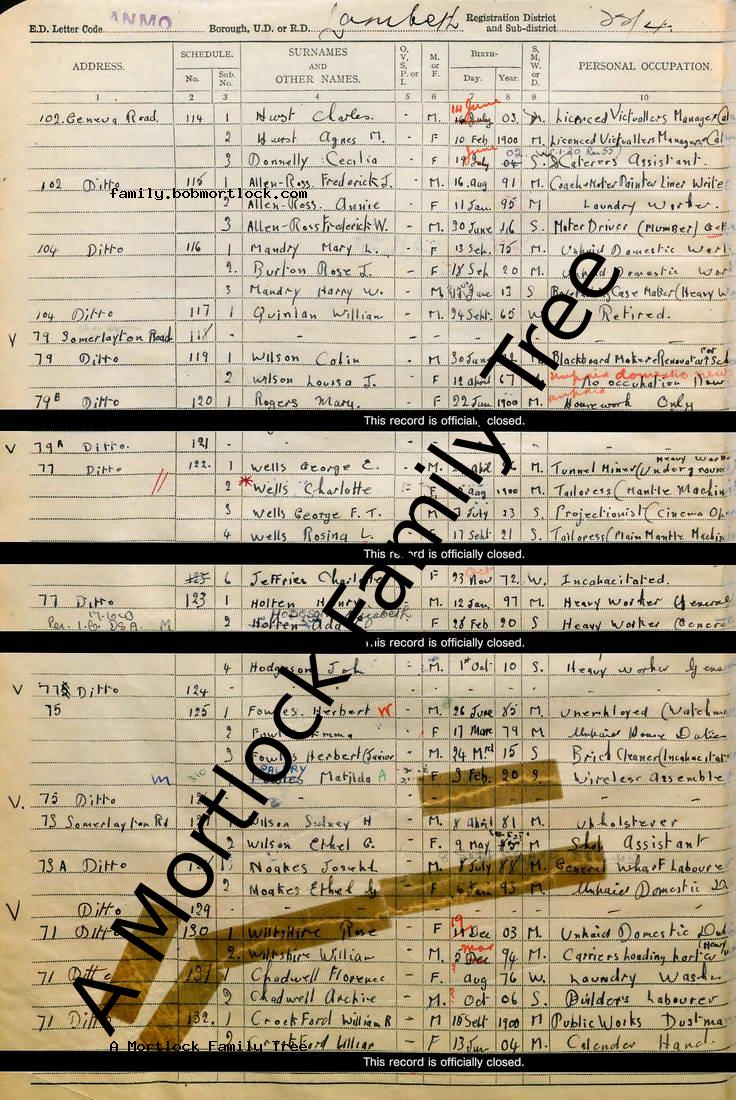 E.D. Letter Code ANMO Borough, U.D. or R.D. Lambeth Registration District and Sub-district 22/4.
ADDRESS. SCHEDULE. No. Sub. No. SURNAMES AND OTHER NAMES. O, V, S, P, or I. M. or F. BIRTH- Day. Year. S, M, W, or D. PERSONAL OCCUPATION.
1 2 3 4 5 6 7 8 9 10
102 Geneva Road 114 1 Hurst Charles. - M. 14 June 03 M. Licenced Victuallers Manager
2 Hurst Agnes M. - F 10 Feb 1900 M. Licenced Victuallers Manager
3 Donnelly Cecilia - F 19 July June 04 02 S. Caterers Assistant.
102 Ditto 115 1 Allen-Ross. Frederick J. - M. 16 Aug 91 M. Coach & Moter Painter Liner Write
family.bobmortlock.com
2 Allen-Ross. Annie - F 11 Jan. 95 M Laundry Worker.
3 Allen-Ross Frederick W. - M. 30 June 16 S. Moter Driver (Plumber)
104 Ditto 116 1 Mandry Mary L. - F 13 Sep. 75 M. Unpaid Domestic Work
2. Burton Rose J. - F 18 Sep 20 M. Unpaid Domestic Wor
3 Mandry Harry W. - M. June 13 S Case Maker (Heavy W
104 Ditto 117 1 Quinlan William - M. 24 Sept. 65 W Retired.
V 79 Somerlayton Road 118 - - - - - -
79 Ditto 119 1 Wilson Colin - M. 30 June Blackboard Maker & Renovator
2 Wilson Louisa J. - F 12 April 67 No occupation
79B Ditto 120 1 Rogers Mary. - F. 22 Jan 1900 M. Housework Only
This record is officially closed.
V 79A Ditto. 121 - -
77 Ditto 122. 1 Wells George E. M. April M. Tunnel Miner (Underground Heavy Worke
2 Wells Charlotte F Aug 1900 M. Tailoress (Mantle Machin
3 Wells George F. T. M. July 23 S. Projectionist (Cinema Ope
4 Wells Rosina L. 17 Sept 21 S. Tailoress (Plain Mantle Machin
This record is officially closed.
123 6 Jeffries Charlotte F 23 Nov 72. W. Incapacitated.
77 Ditto 123 1 Holten Henry. M. 12 Jan. 97 M. Heavy Worker General
2 Holten Ada F 28 Feb 20 S Heavy Worker (General
This record is officially closed.
4 Hodgeson Joh - M. 1st Oct 10 S. Heavy Worker Gene
V 77 Ditto 124 - - - - - - -
75 125 1 Fowles Herbert - M. 26 June 85 M. Unemployed (Watchm
2 Emma - F 17 Marc 79 M Unpaid House Dutie
3 Fowles Herbert (Junior - M. 24 Mrd 15 S Brick Cleaner (Incapacitat
Fowles Matilda A F 3 Feb. 20 S. Wireless Assemble
V. 75 Ditto - - - - -
73 Somerlayton Rd Wilson Sidney H - M. 8 April 81 M. Upholsterer
2 Wilson Ethel G. - F. 9 May M Shop Assistant
73 A Ditto Noakes Joseph - M. 8 July 88 M. General Wharf Laboure
2 Noakes Ethel - F 6 Jan 93 M. Unpaid Domestic
V Ditto 129 - - - - - -
71 Ditto 130 1 Wiltshire Rose - F 19 Dec 03 M. Unpaid Domestic Dut
2. Wiltshire William - M. 5 Dec Mar 94 M. Carriers Loading Porter (Heavy
71 Ditto 131 1 Chadwell Florence - F ? Aug 76 W. Laundry Washe
2 Chadwell Archive - M. ? Oct 06 S. Builders Labourer
71 Ditto 132. 1 Crockford William R - M 15 Sept 1900 M Public Works Dustma
2 Crockford Lilian - F. 13 Jan 04 M. Calender Hand.
A Mortlock Family Tree
This record is officially closed.
A Mortlock Family Tree